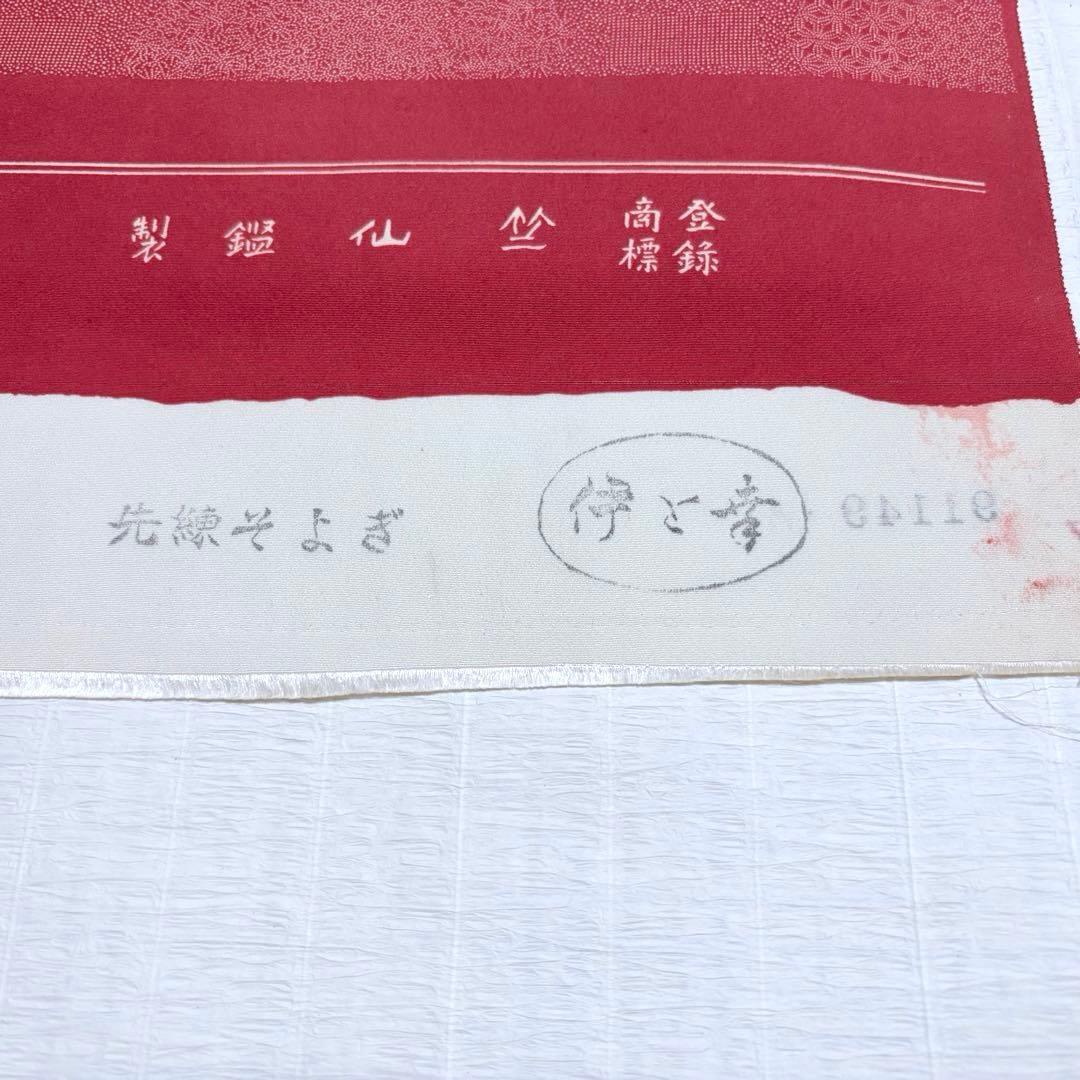 登録商標 竺仙鑑製
先練そよぎ
伊と幸
91149